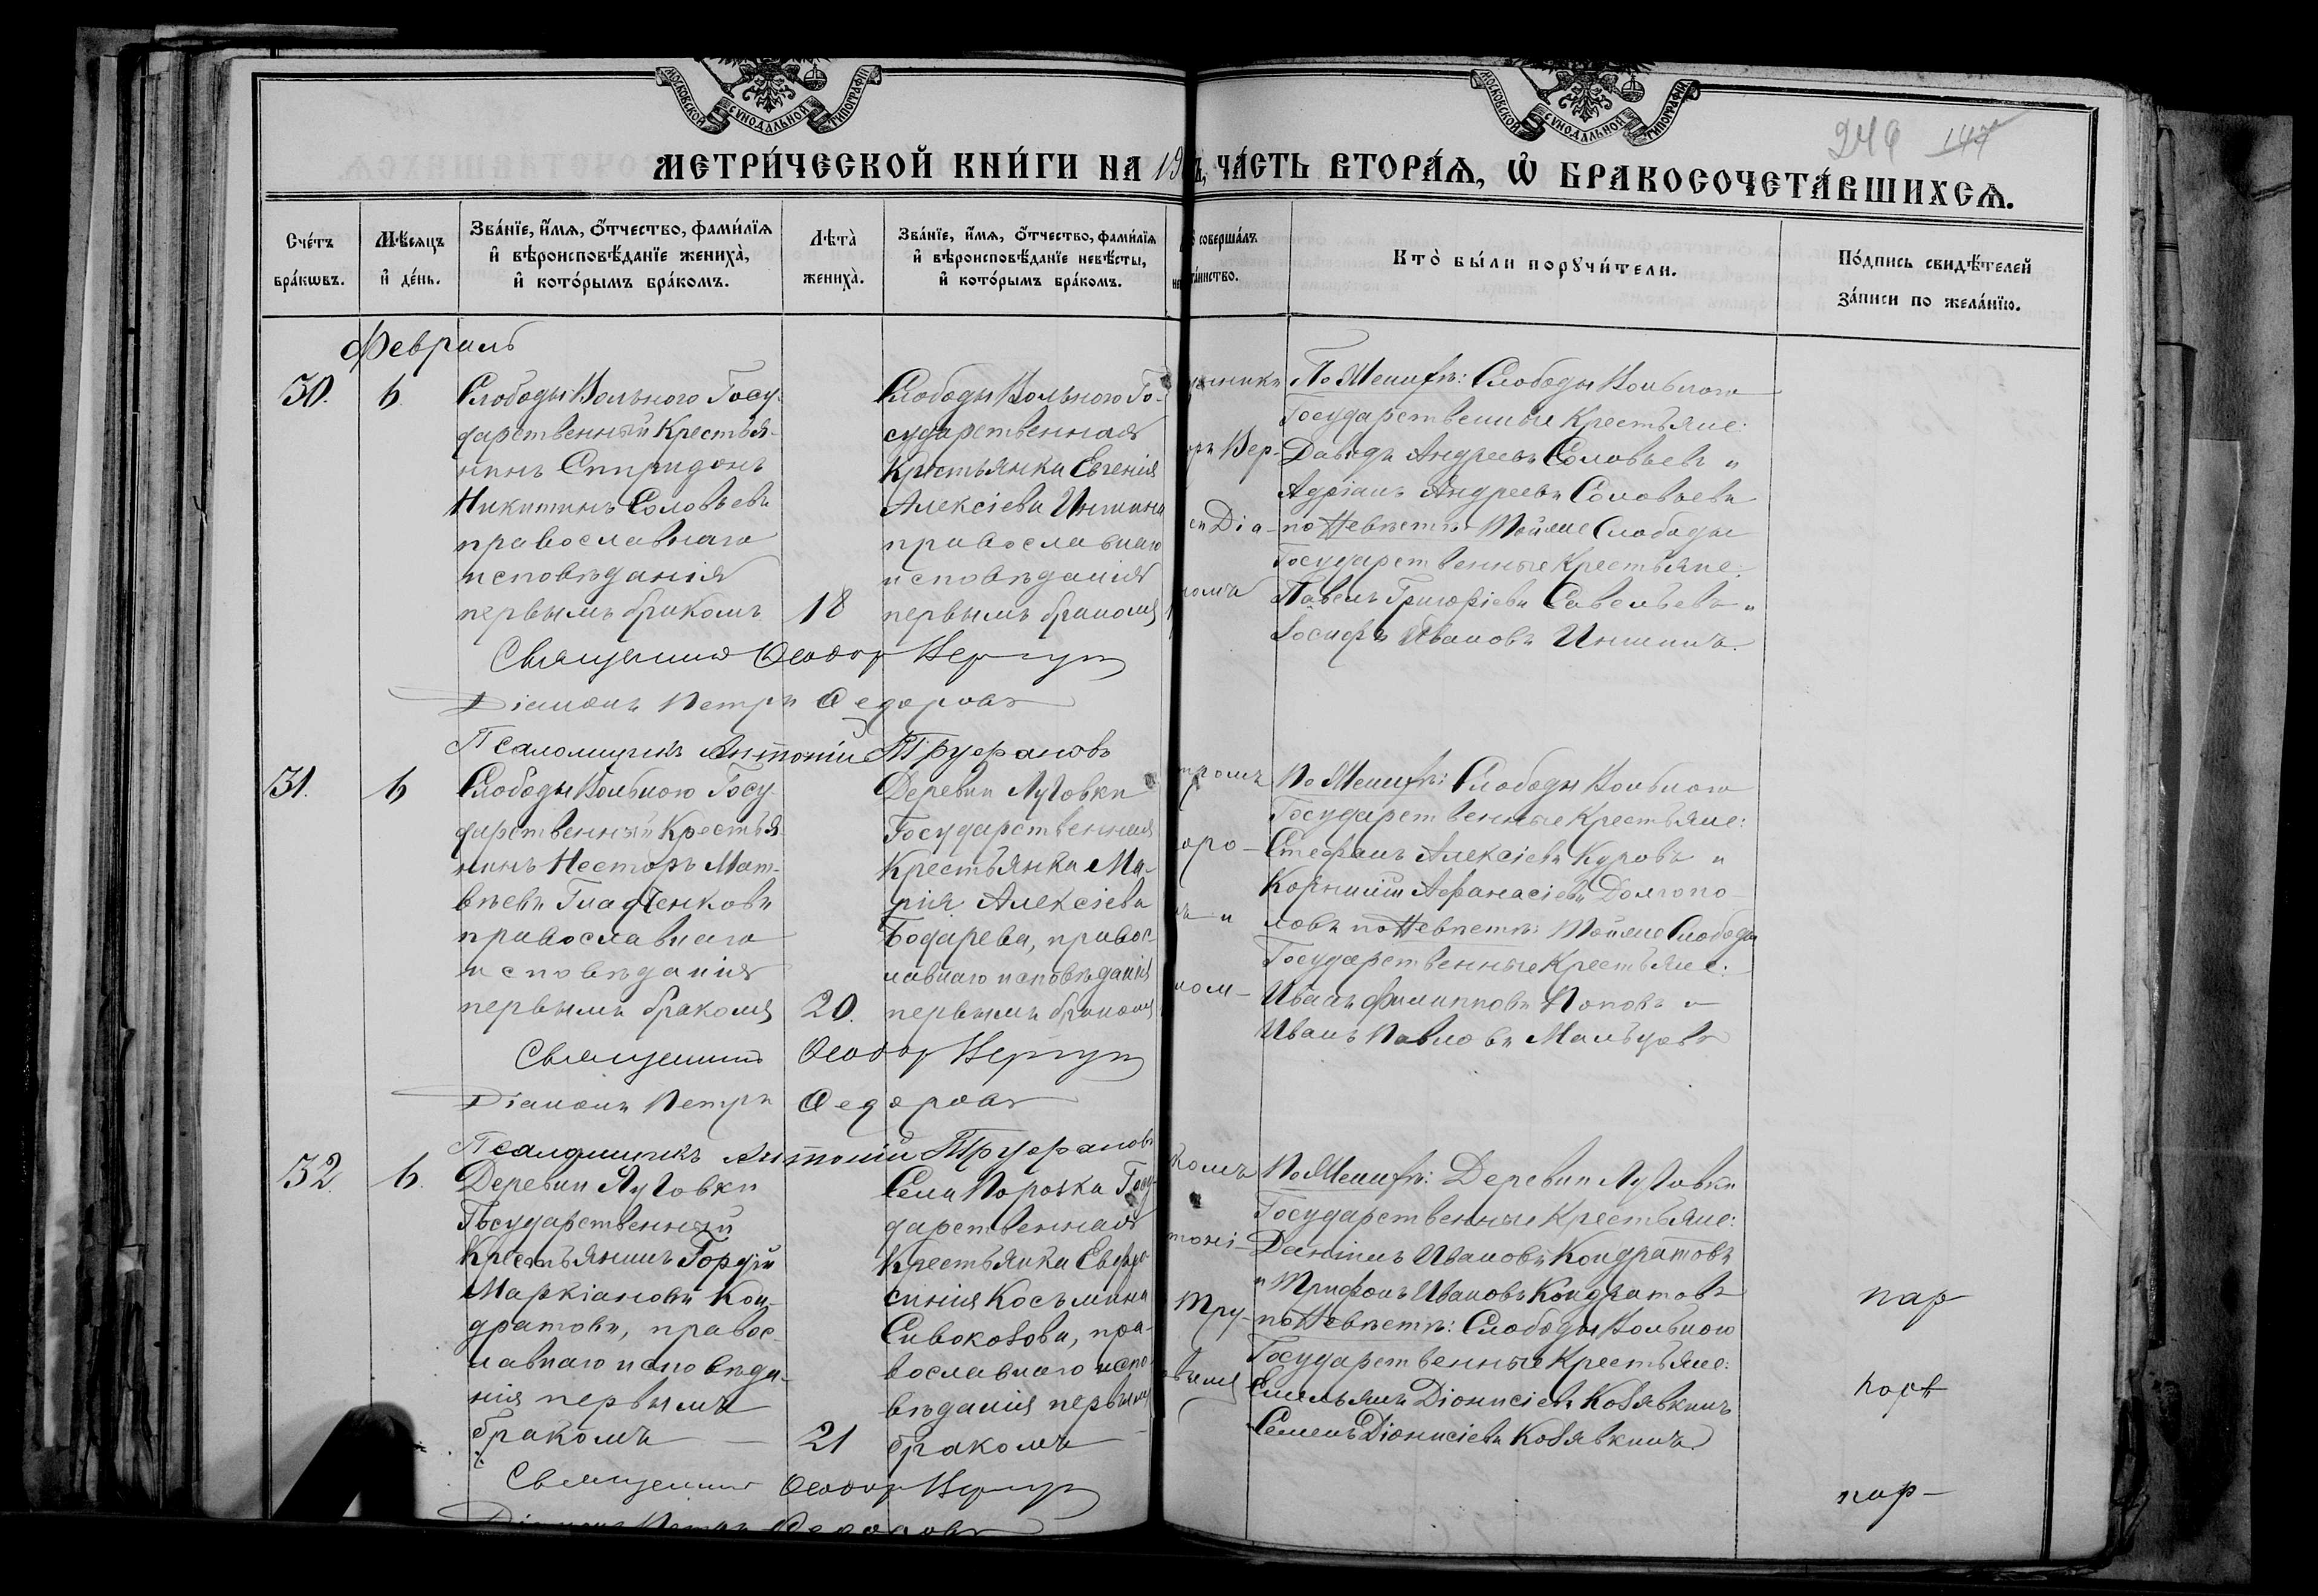 МОСКОВСКОЙ СѴНОДАЛЬНОЙ ТИПОГРАФІИ
МОСКОВСКОЙ СѴНОДАЛЬНОЙ ТИПОГРАФІИ
246 147
МЕТРИ́ЧЕСКОЙ КНИ́ГИ НА 19
Ъ, ЧА́СТЬ ВТОРА́Ѧ, Ѡ҆ БРАКОСОЧЕТА́ВШИХСѦ.
Сче́тъ бра́кѡвъ.
Мѣ́сяцъ и҆ де́нь.
Зва́нїе, и҆́мѧ, ѻ҆́тчество, фами́лїѧ и҆ вѣроисповѣ́данїе жениха̀, и҆ кото́рымъ бра́комъ.
Лѣта̀ жениха̀.
Зва́нїе, и҆́мѧ, ѻ҆́тчество, фами́лїѧ и҆ вѣроисповѣ́данїе невѣ́сты, и҆ кото́рымъ бра́комъ.
совершалъ
таинство.
Кто̀ бы́ли порꙋчи́тели.
По́дпись свидѣ́телей за́писи по жела́нїю.
Февраль
30. 6.
Слободы Вольного Госу-
дарственный Крестья-
нинъ Спиридонъ
Никитинъ Соловьевъ
православнаго
исповѣданія
первымъ бракомъ
18
Слободы Вольного Го-
сударственная
Крестьянка Евгенія
Алексіева Иншина
православнаго
исповѣданія
первымъ бракомъ
По Женихѣ: Слободы Вольного
Государственные Крестьяне:
Давидъ Андреевъ Соловьевъ и
Адріанъ Андреевъ Соловьевъ
по Невѣстѣ: Той же Слободы
Государственные Крестьяне:
Павелъ Григоріевъ Савельевъ и
Іосифъ Ивановъ Иншинъ.
Священник Ѳеодор
Діаконъ Петръ Ѳедоровъ
Псаломщикъ Антоній Труфановъ
31. 6
Слободы Вольного Госу-
дарственный Крестья-
нинъ Несторъ Мат-
вѣевъ Гладченковъ
православнаго
исповѣданія
первымъ бракомъ
20.
Деревни Луговки
Государственная
Крестьянка Ма-
рія Алексіева
Бодарева, правос-
лавнаго исповѣданія
первымъ бракомъ
По Женихѣ: Слободы Вольного
Государственные Крестьяне:
Стефанъ Алексіевъ Куровъ и
Корнилій Афанасіевъ Долгопо-
ловъ по Невѣстѣ: Той же Слободы
Государственные Крестьяне:
Иванъ Филипповъ Поповъ и
Иванъ Павловъ Мальцовъ
Священник Ѳеодор
Діаконъ Петръ Ѳедоровъ
Псаломщикъ Антоній Труфановъ
32. 6.
Деревни Луговки
Государственный
Крестьянинъ Гордій
Маркіановъ Кон-
дратовъ, правос-
лавнаго исповѣда-
нія первымъ
бракомъ
21
Села Порозка Госу-
дарственная
Крестьянка Евфро-
синія Косьмина
Сивокозова, пра-
вославнаго испо-
вѣданія первымъ
бракомъ
По Женихѣ: Деревни Луговки
Государственные Крестьяне:
Даніилъ Ивановъ Кондратовъ
и Трифонъ Ивановъ Кондратовъ
по Невѣстѣ: Слободы Вольного
Государственные Крестьяне:
Емельянъ Діонисіевъ Козявкинъ
Семенъ Діонисіевъ Козявкинъ
Священник Ѳеодор
Діаконъ Петръ Ѳедоровъ